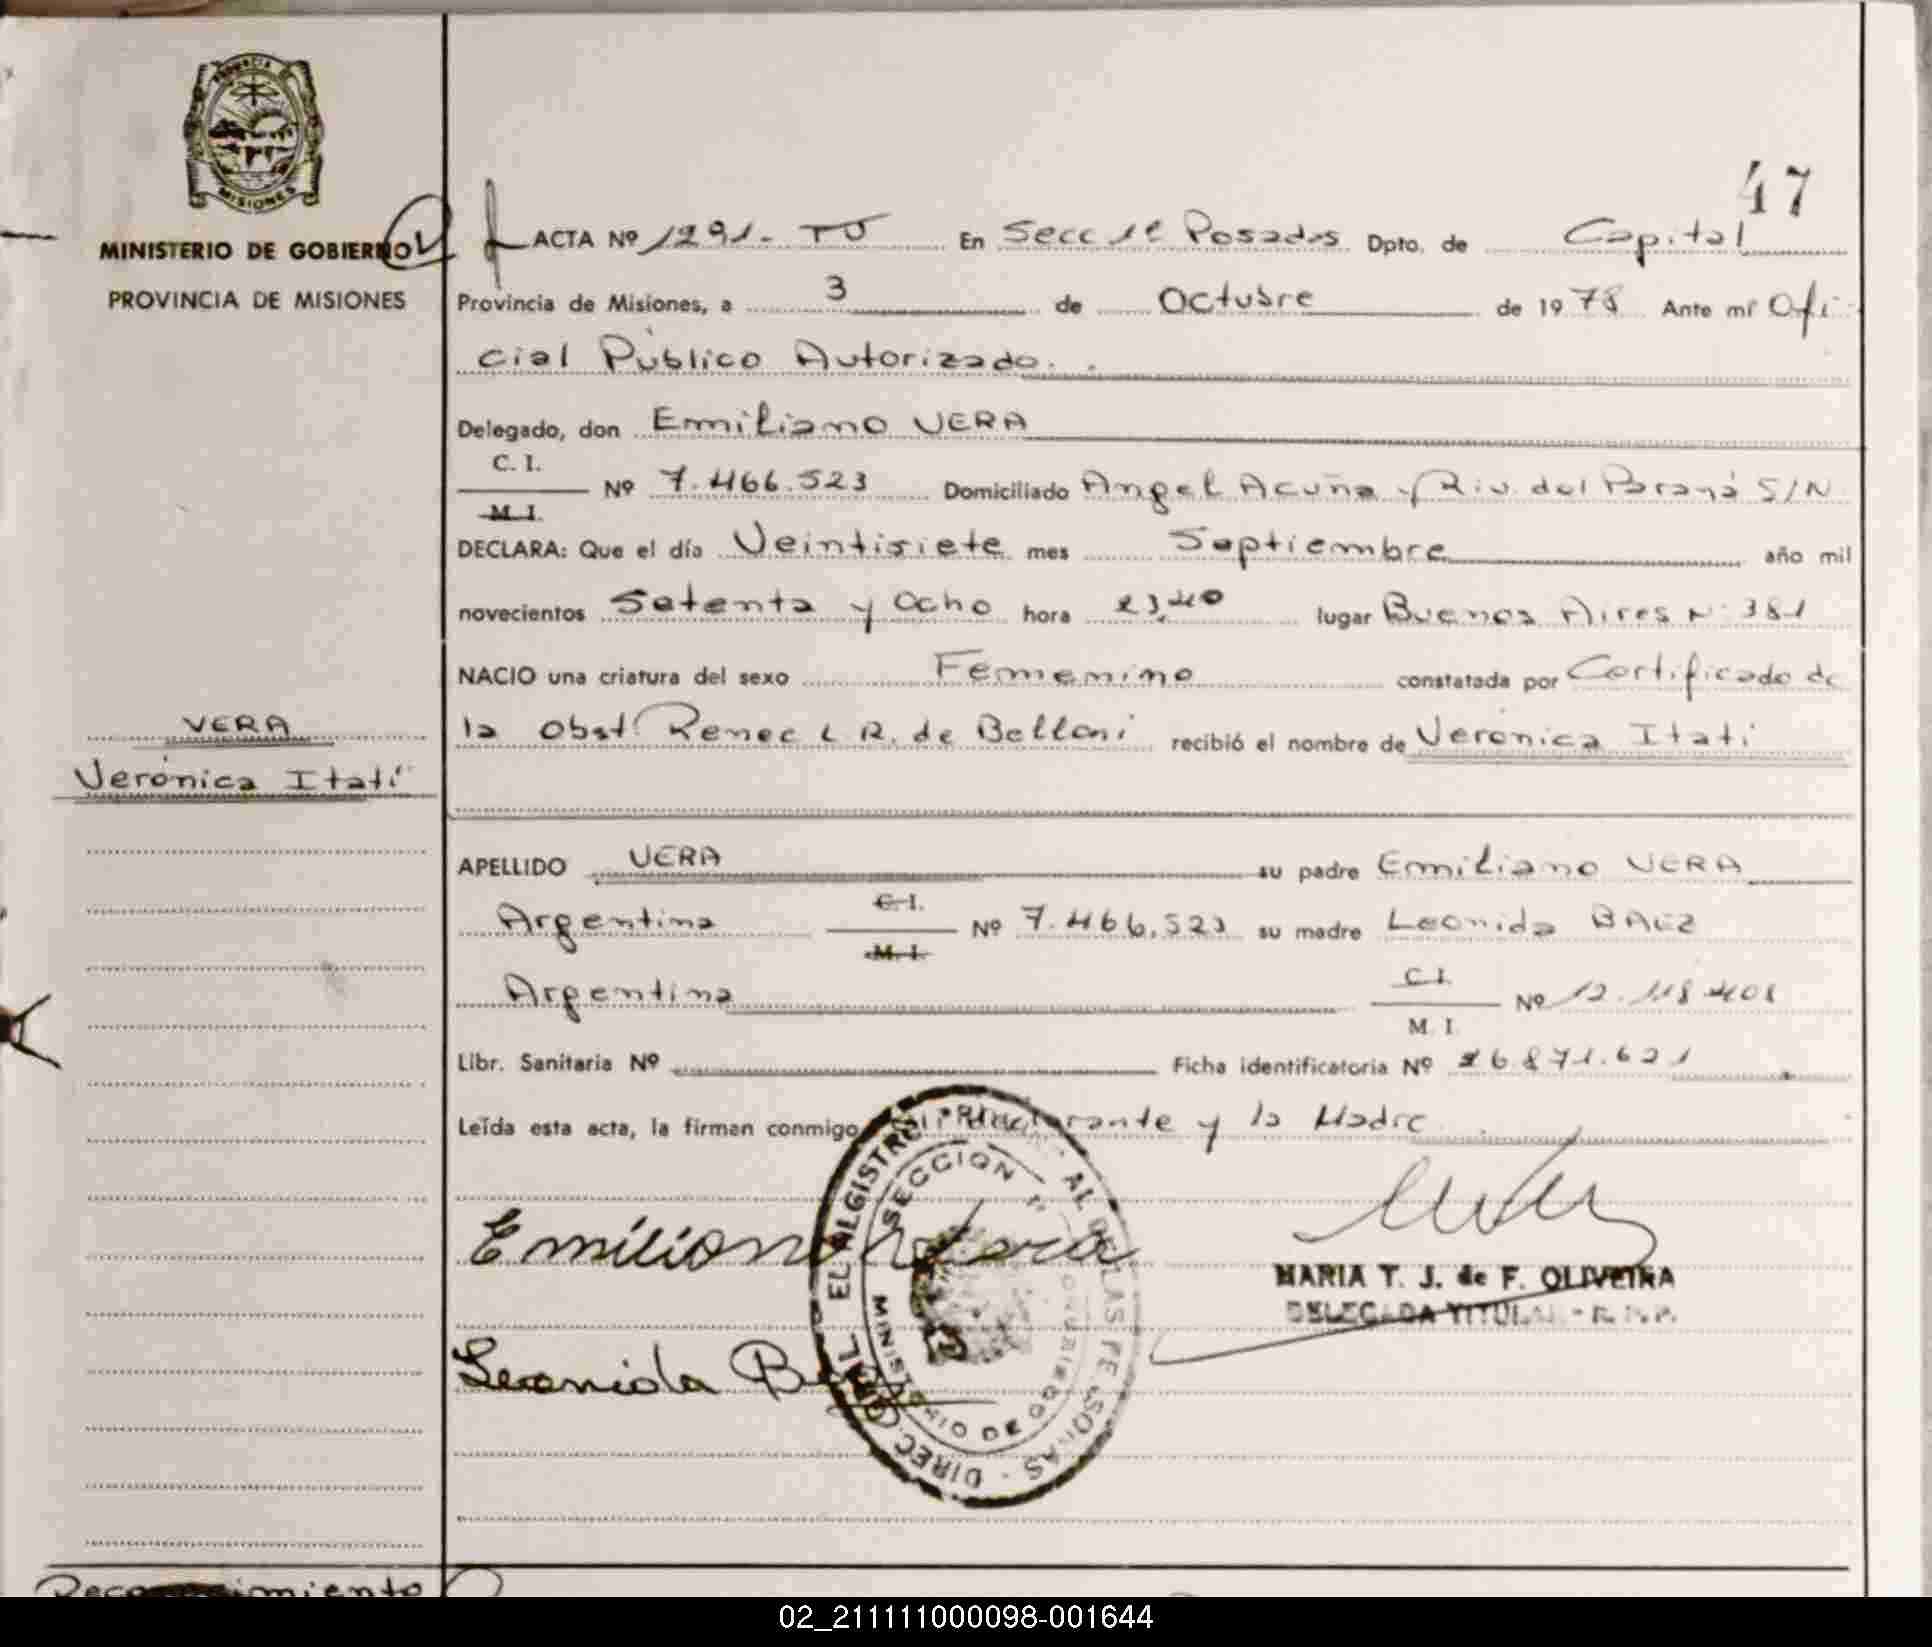 PROVINCIA DE
MISIONES
MINISTERIO DE GOBIERNO
PROVINCIA DE MISIONES
VERA
Verónica Itatí
47
ACTA Nº 1291- TU En Secc 1ª Posadas Dpto. de Capital
Provincia de Misiones, a 3 de Octubre de 1978 Ante mí Ofi
cial Público Autorizado.
Delegado, don Emiliano VERA
C. I.
M. I.
Nº 7.466.523 Domiciliado Angel Acuña y Riv. del Paraná S/N
DECLARA: Que el día Veintisiete mes Septiembre año mil
novecientos Setenta y Ocho hora 23,40 lugar Buenos Aires N: 381
NACIO una criatura del sexo Femenino constatada por Certificado de
la Obst. Renee L R. de Belloni recibió el nombre de Verónica Itatí
APELLIDO VERA su padre Emiliano VERA
Argentina C. I. M. I. Nº 7.466.523 su madre Leonida BAEZ
Argentina C. I. M. I. Nº 12.118.408
Libr. Sanitaria Nº Ficha identificatoria Nº 26.871.621
Leída esta acta, la firman conmigo declarante y la Madre
Emiliano Vera
MARIA T. J. de F. OLIVEIRA
DELEGADA TITULAR - R. P. P.
Leonida
SECCION
MINISTERIO DE GOBIERNO
Reconocimiento
02_211111000098-001644